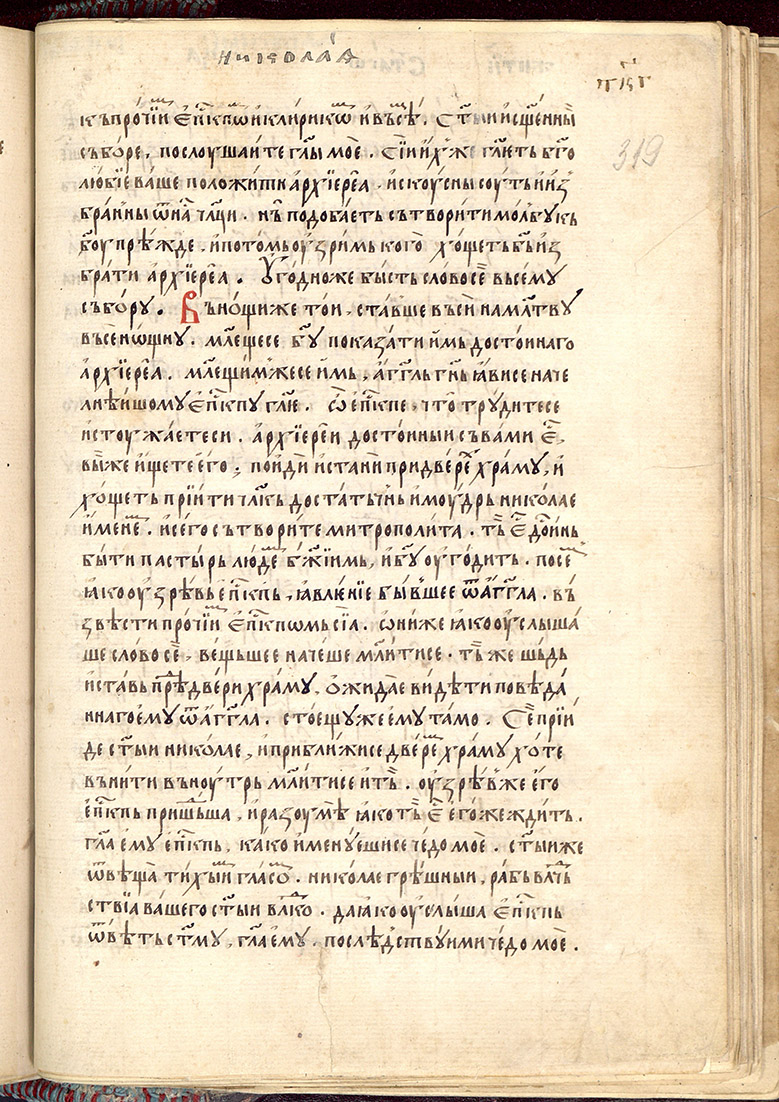 НИКОЛА́А
тк҃г
319
къ прочїи́м є҆пⷭ҇кпѡⷨ и҆ клирикѡⷨ и҆ въсѣⷨ . Ст҃ыи и҆ сщ҃е́нныи
събо́ре , послоу́шаите гл҃ы моѐ . Сїи и҆хже гл҃еть б҃го
любїе ва́ше положити а҆рхїере́а . и҆скоусны соуть и҆ и҆з
бра́нны ѿ на́ чл҃ци . нь̏ подоба́еть сътвори́ти мол҃вꙋ къ
б҃оу прѣ́жде . и҆ пото́мь оу҆́зримь кого̀ хо́щеть б҃ь и҆з
бра́ти а҆рхїере́а . Оу҆го́дно же бы́сть сло́во сѐ вьсе́мꙋ
събо́рꙋ . Въ но́щи же то́и , ста́вше въси̏ на мл҃твꙋ
въсено́щнꙋ . мл҃еще се б҃ꙋ показа́ти и҆́мь досто́инаго
а҆рхїере́а . мл҃ещим же се и҆́мь , а҆́гг҃ль гн҃ь ꙗ҆ви се наче
лнѣ́ишомꙋ є҆пⷭ҇кпꙋ гл҃е . Ѽ є҆пⷭ҇кпе , что̀ трꙋ́дите се
и҆ стоужа́ете си . а҆рхїере́и досто́иныи съ ва́ми є҆̑ ,
вы́ же и҆́щете є҆го̀ ; пои́ди и҆ ста́ни при две́ре хра́мꙋ , и҆
хо́щеть прїи́ти чл҃кь доста́тꙋ́чнь и҆ моу́дрь николае
и҆́менеⷨ . и҆ сего̀ сътвори́те митрополи́та . тъ̏ є҆̑ до́инь
бы́ти па́стырь лю́деⷨ бж҃їимь , и҆ б҃ꙋ оу҆го́дить . по сеⷨ
ꙗ҆ко оу҆зрѣвь є҆пⷭ҇кпь , ꙗ҆вле́нїе бы́вшее ѿ а҆́гг҃ла . въ
звѣ́сти про́чїиⷨ є҆пⷭ҇кпѡмь сїа̀ . ѻ҆ни́ же ꙗ҆ко оу҆слы́ша
ше сло́во сѐ , ве́щьшее наче́ше мл҃ити се . тъ̏ же шь́дь
и҆ ста́вь прѣⷣ две́ри хра́мꙋ , ѻ҆жида́е ви́дѣти повѣ́да
ннаго є҆мꙋ ѿ а҆́гг҃ла . стоещꙋ́ же є҆мꙋ та́мо . Сѐ прїи́
де ст҃ыи никола́е , и҆ прибли́жи се две́реⷨ хра́мꙋ хо́те
въни́ти въноу́трь мл҃ити се и҆ тъ̏ . оу҆зрѣв же є҆го
є҆пⷭ҇кпь прише́дьша , и҆ разоумѣ̀ ꙗ҆ко тъ̏ є҆̑ є҆го́же жде́ть .
гл҃а є҆мꙋ є҆пⷭ҇кпь , ка́ко и҆менꙋ́еши се че́до моѐ . ст҃ыи же
ѿвѣща̀ ти́хыиⷨ гла́соⷨ . никола́е грѣ́шныи , ра́бь влⷣч҃ь
ствїа ва́шего ст҃ыи влⷣко . да ꙗ҆ко оу҆слы́ша є҆пⷭ҇кпь
ѿвѣ́ть ст҃мꙋ , гл҃а є҆мꙋ . послѣ́дствꙋи ми че́до моѐ .